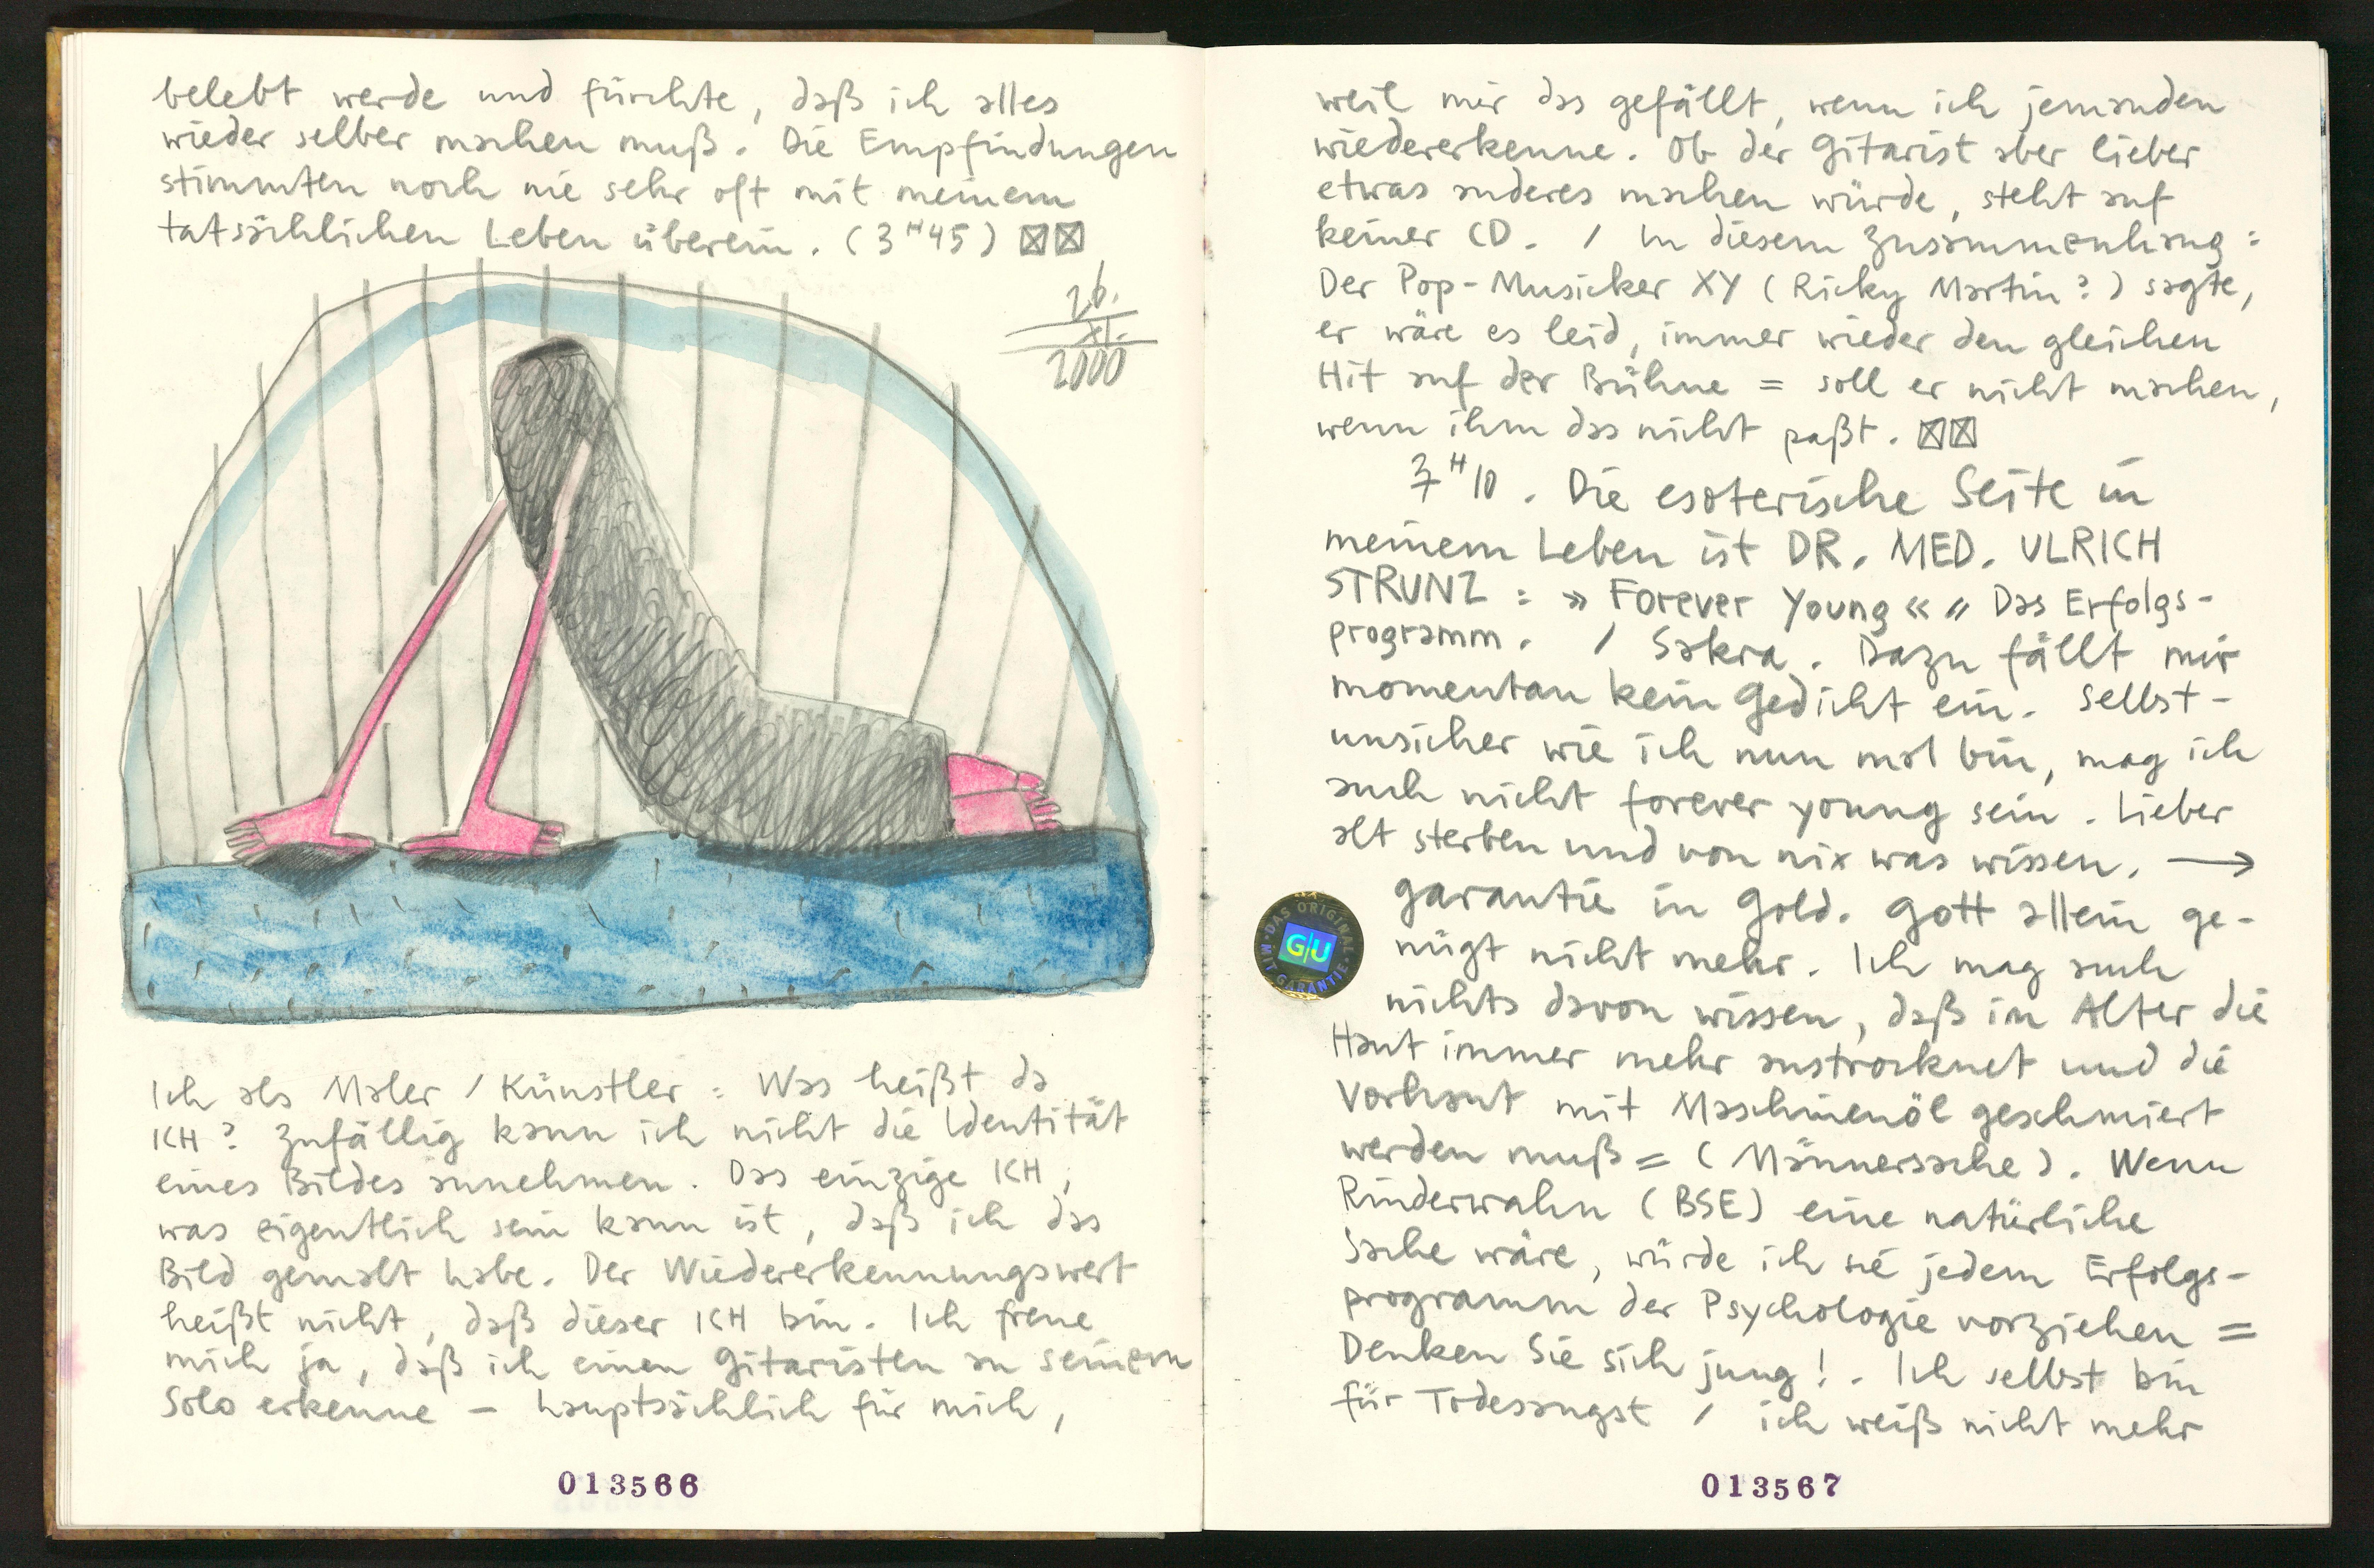 belebt werde und fürchte, daß ich alles
wieder selber machen muß. Die Empfindungen
stimmten noch nie sehr oft mit meinem
tatsächlichen Leben überein. (3 H 45)
26.
XI.
2000
Ich als Maler / Künstler : Was heißt da
ICH? Zufällig kann ich nicht die Identität
eines Bildes annehmen. Das einzige ICH,
was eigentlich sein kann ist, daß ich das
Bild gemalt habe. Der Wiedererkennungswert
heißt nicht, daß dieser ICH bin. Ich freue
mich ja, daß ich einen Gitaristen an seinem
Solo erkenne – hauptsächlich für mich,
013566
weil mir das gefällt, wenn ich jemanden
wiedererkenne. Ob der Gitarist aber lieber
etwas anderes machen würde, steht auf
keiner CD. / In diesem Zusammenhang :
Der Pop-Musicker XY (Ricky Martin?) sagte,
er wäre es leid, immer wieder den gleichen
Hit auf der Bühne = soll er nicht machen,
wenn ihm das nicht paßt.
7 H 10. Die esoterische Seite in
meinem Leben ist DR. MED. ULRICH
STRUNZ : » Forever Young « " Das Erfolgs-
programm. / Sakra. Dazu fällt mir
momentan kein Gedicht ein. Selbst-
unsicher wie ich nun mal bin, mag ich
auch nicht forever young sein. Lieber
alt sterben und von nix was wissen. →
garantie in Gold. Gott allein ge-
nügt nicht mehr. Ich mag auch
nichts davon wissen, daß im Alter die
Haut immer mehr austrocknet und die
Vorhaut mit Maschinenöl geschmiert
werden muß = (Männersache). Wenn
Rinderwahn (BSE) eine natürliche
Sache wäre, würde ich sie jedem Erfolgs-
programm der Psychologie vorziehen =
Denken Sie sich jung! . Ich selbst bin
für Todesangst / ich weiß nicht mehr
DAS ORIGINAL
G|U
MIT GARANTIE
013567